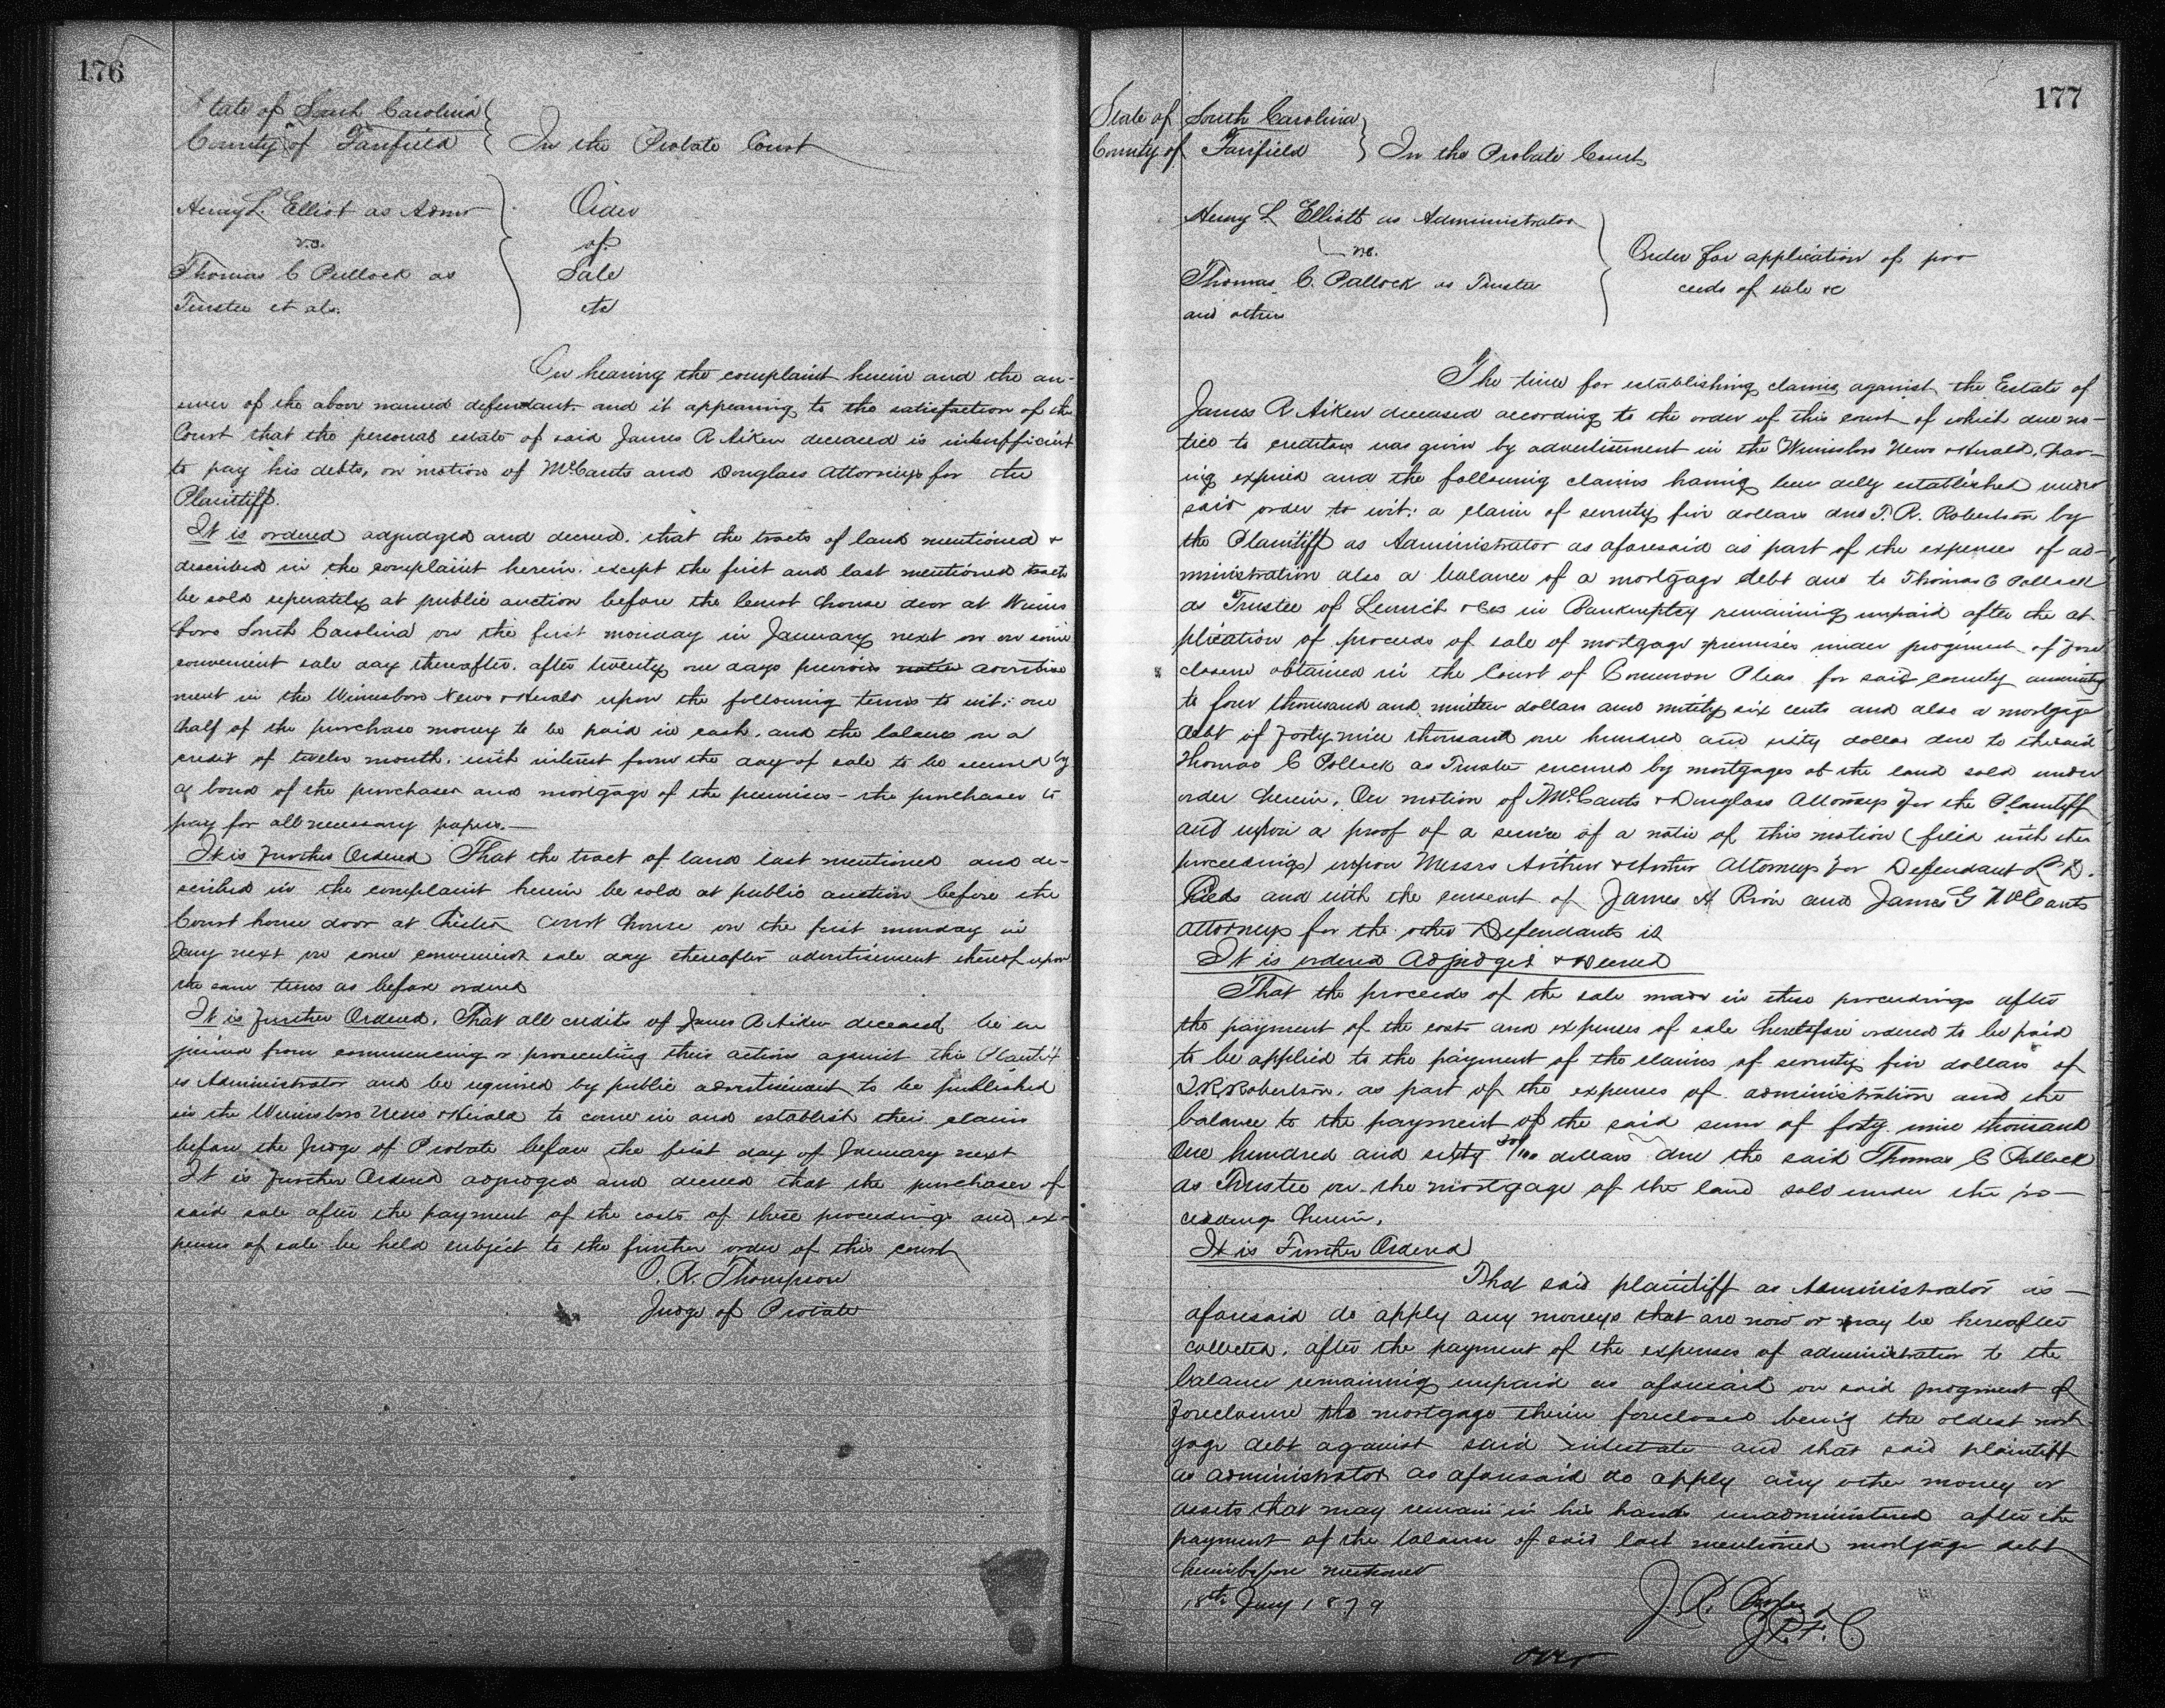 176
State of South Carolina
County of Fairfield } In the Probate Court
Henry L. Elliot as Admr
vs.
Thomas C Pullock as
Trustee et als.
Order
of
Sale
etc
On hearing the complaint herein and the an-
swer of the above named defendant and it appearing to the satisfaction of the
Court that the personal estate of said James R Aiken deceased is insufficient
to pay his debts, on motion of McCants and Douglass Attorneys for the
Plaintiff.
It is ordered adjudged and decreed. that the tracts of land mentioned &
described in the complaint herein. except the first and last mentioned tracts
be sold seperately at public auction before the Court house door at Winns
boro South Carolina on the first monday in January next or on some
convenient sale day thereafter. after twenty one days previous notice advertise
ment in the Winnsboro News & Herald upon the following terms to wit: one
half of the purchase money to be paid in cash. and the balance on a
credit of twelve month. with interest from the day of sale to be secured by
a bond of the purchaser and mortgage of the premises - the purchaser to
pay for all necessary papers.—
It is Further Ordered That the tract of land last mentioned and de-
scribed in the complaint herein be sold at public auction before the
Court house door at Chester Court house on the first monday in
Jany next or some convenient sale day thereafter advertisement thereof upon
the same terms as before ordered
It is Further Ordered. That all credits of James R Aiken deceased be en
joined from commencing or prosecuting their actions against the Plaintiff
as Administrator and be required by public advertisement to be published
in the Winnsboro News & Herald to come in and establish their claims
before the Judge of Probate before the first day of January next
It is Further Ordered adjudged and decreed that the purchaser of
said sale after the payment of the costs of these proceedings and ex-
penses of sale be held subject to the further order of this court
O. R. Thompson
Judge of Probate
177
State of South Carolina
County of Fairfield } In the Probate Court
Henry L Elliott as Administrator
vs.
Thomas C. Pullock as Trustee
and others
Order for application of pro
ceeds of sale &c
The time for establishing claims against the Estate of
James R Aiken deceased according to the order of this court of which due no-
tice to creditors was given by advertisement in the Winnsboro News & Herald, hav-
ing expired and the following claims having been duly established under
said order to wit: a claim of seventy five dollars due T. R. Robertson by
the Plaintiff as Administrator as aforesaid as part of the expenses of ad-
ministration also a balance of a mortgage debt due to Thomas C Pollock
as Trustee of & Co in Bankruptcy remaining unpaid after the ap
plication of proceeds of sale of mortgage premises under judgment of fore
closure obtained in the Court of Common Pleas for said county amounting
to four thousand and nineteen dollars and ninety six cents and also a mortgage
debt of forty nine thousand one hundred and sixty dollars due to the said
Thomas C Pollock as Trustee secured by mortgages of the land sold under
order herein. On motion of McCants & Douglass Attorneys for the Plaintiff
and upon a proof of a service of a notice of this motion (filed with the
proceedings) upon Messrs Attorneys for Defendant L D.
and with the consent of James H Rion and James G McCants
attorneys for the other Defendants it
It is ordered Adjudged & Decreed
That the proceeds of the sale made in these proceedings after
the payment of the costs and expenses of sale heretofore ordered to be paid
to be applied to the payment of the claims of seventy five dollars of
T. R. Robertson. as part of the expenses of administration and the
balance to the payment of the said sum of forty nine thousand
One hundred and sixty /100 dollars due the said Thomas C Pullock
as Trustee on the mortgage of the land sold under the pro—
ceedings herein.
It is Further Ordered
That said plaintiff as Administrator as—
aforesaid do apply any moneys that are now or may be hereafter
collected, after the payment of the expenses of administration to the
balance remaining unpaid as aforesaid on said judgment of
foreclosure the mortgage therein foreclosed being the oldest mort
gage debt against said intestate and that said plaintiff
as administrator as aforesaid do apply any other money or
assets that may remain in his hands unadministered after the
payment of the balance of said last mentioned mortgage debt
hereinbefore mentioned
18th Jany 1879
J. R.
J. P. F. C.
over